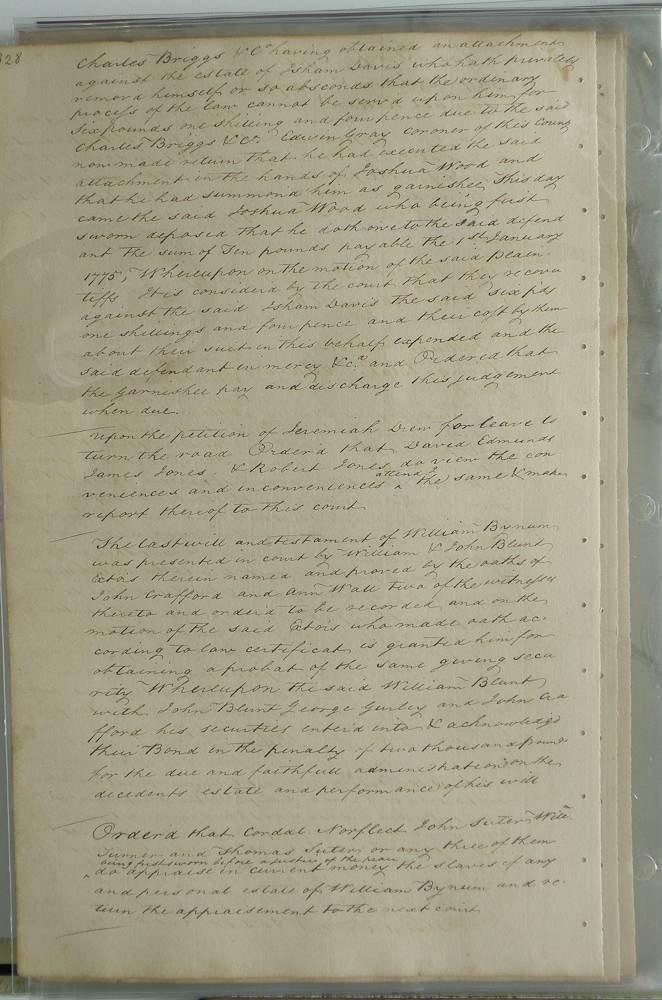 328
Charles Briggs & Co having obtained an attachment
against the estate of Isham Davis who hath privately
remov'd himself or so absconds that the ordinary
process of the law cannot be serv'd upon him for
Six pounds one shilling and four pence due to the said
Charles Briggs & Co. Edwin Gray coroner of this County
now made return that he had executed the said
attachment in the hands of Joshua Wood and
that he had summond him as garnishee This day
came the said Joshua Wood who being first
sworn deposed that he doth owe to the said defend
ant the sum of Ten pounds payable the 1st January
1775, Whereupon on the motion of the said plain-
tiffs It is considerd by the court that they recover
against the said Isham Davis the said six pds
one shillings and four pence and their cost by them
about their suit in this behalf expended and the
said defendant in mercy &ca and Ordered that
the garnishee pay and discharge this judgement
when due.
Upon the petition of Jeremiah Drew for leave to
turn the road Orderd that David Edmunds
James Jones & Robert Jones do view the con
veniences and inconveniences attend'g ^ the same & make
report thereof to this court
The last will and testament of William Bynum
was presented in court by William & John Blunt
Extors therein named and proved by the oaths of
John Crafford and Ann Wall two of the witnesses
thereto and order'd to be recorded and on the
motion of the said Extors who made oath ac-
cording to law certificat is granted him for
obtaining a probat of the same giving secu
rity Whereupon the said William Blunt
with John Blunt George Gurley and John Cra
fford his securities enter'd into & acknowledgd
their Bond in the penalty of two thousand pounds
for the due and faithfull administration on the
decedents estate and performance of his will
Orderd that Cordal Norfleet John Suter Willm
Turner and Thomas Suter or any three of them
being first sworn before a justice of the peace
^ do appraise in current money the slaves if any
and personal estate of William Bynum and re-
turn the appraisement to the next court